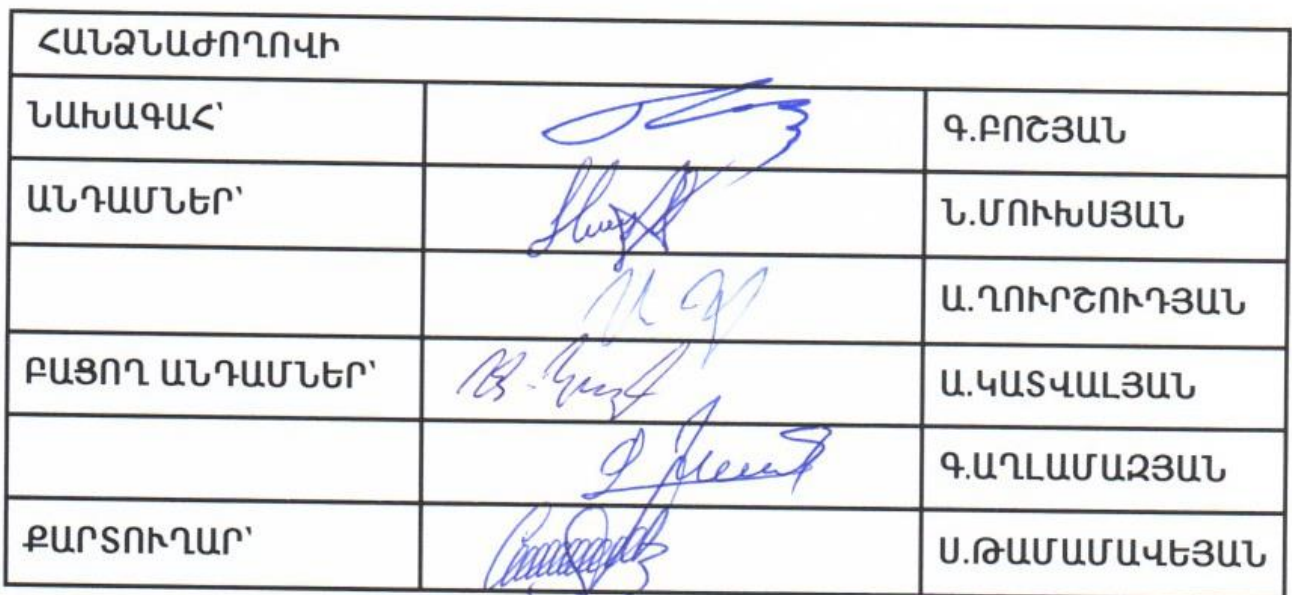 ՀԱՆՁՆԱԺՈՂՈՎԻ
ՆԱԽԱԳԱՀ՝ Գ.ԲՈՇՅԱՆ
ԱՆԴԱՄՆԵՐ՝ Ն.ՄՈՒԽՍՅԱՆ
Ա.ՂՈՒՐՇՈՒԴՅԱՆ
ԲԱՑՈՂ ԱՆԴԱՄՆԵՐ՝ Ա.ԿԱՏՎԱԼՅԱՆ
Գ.ԱՂԼԱՄԱԶՅԱՆ
ՔԱՐՏՈՒՂԱՐ՝ Ս.ԹԱՄԱՄԱՎԵՅԱՆ